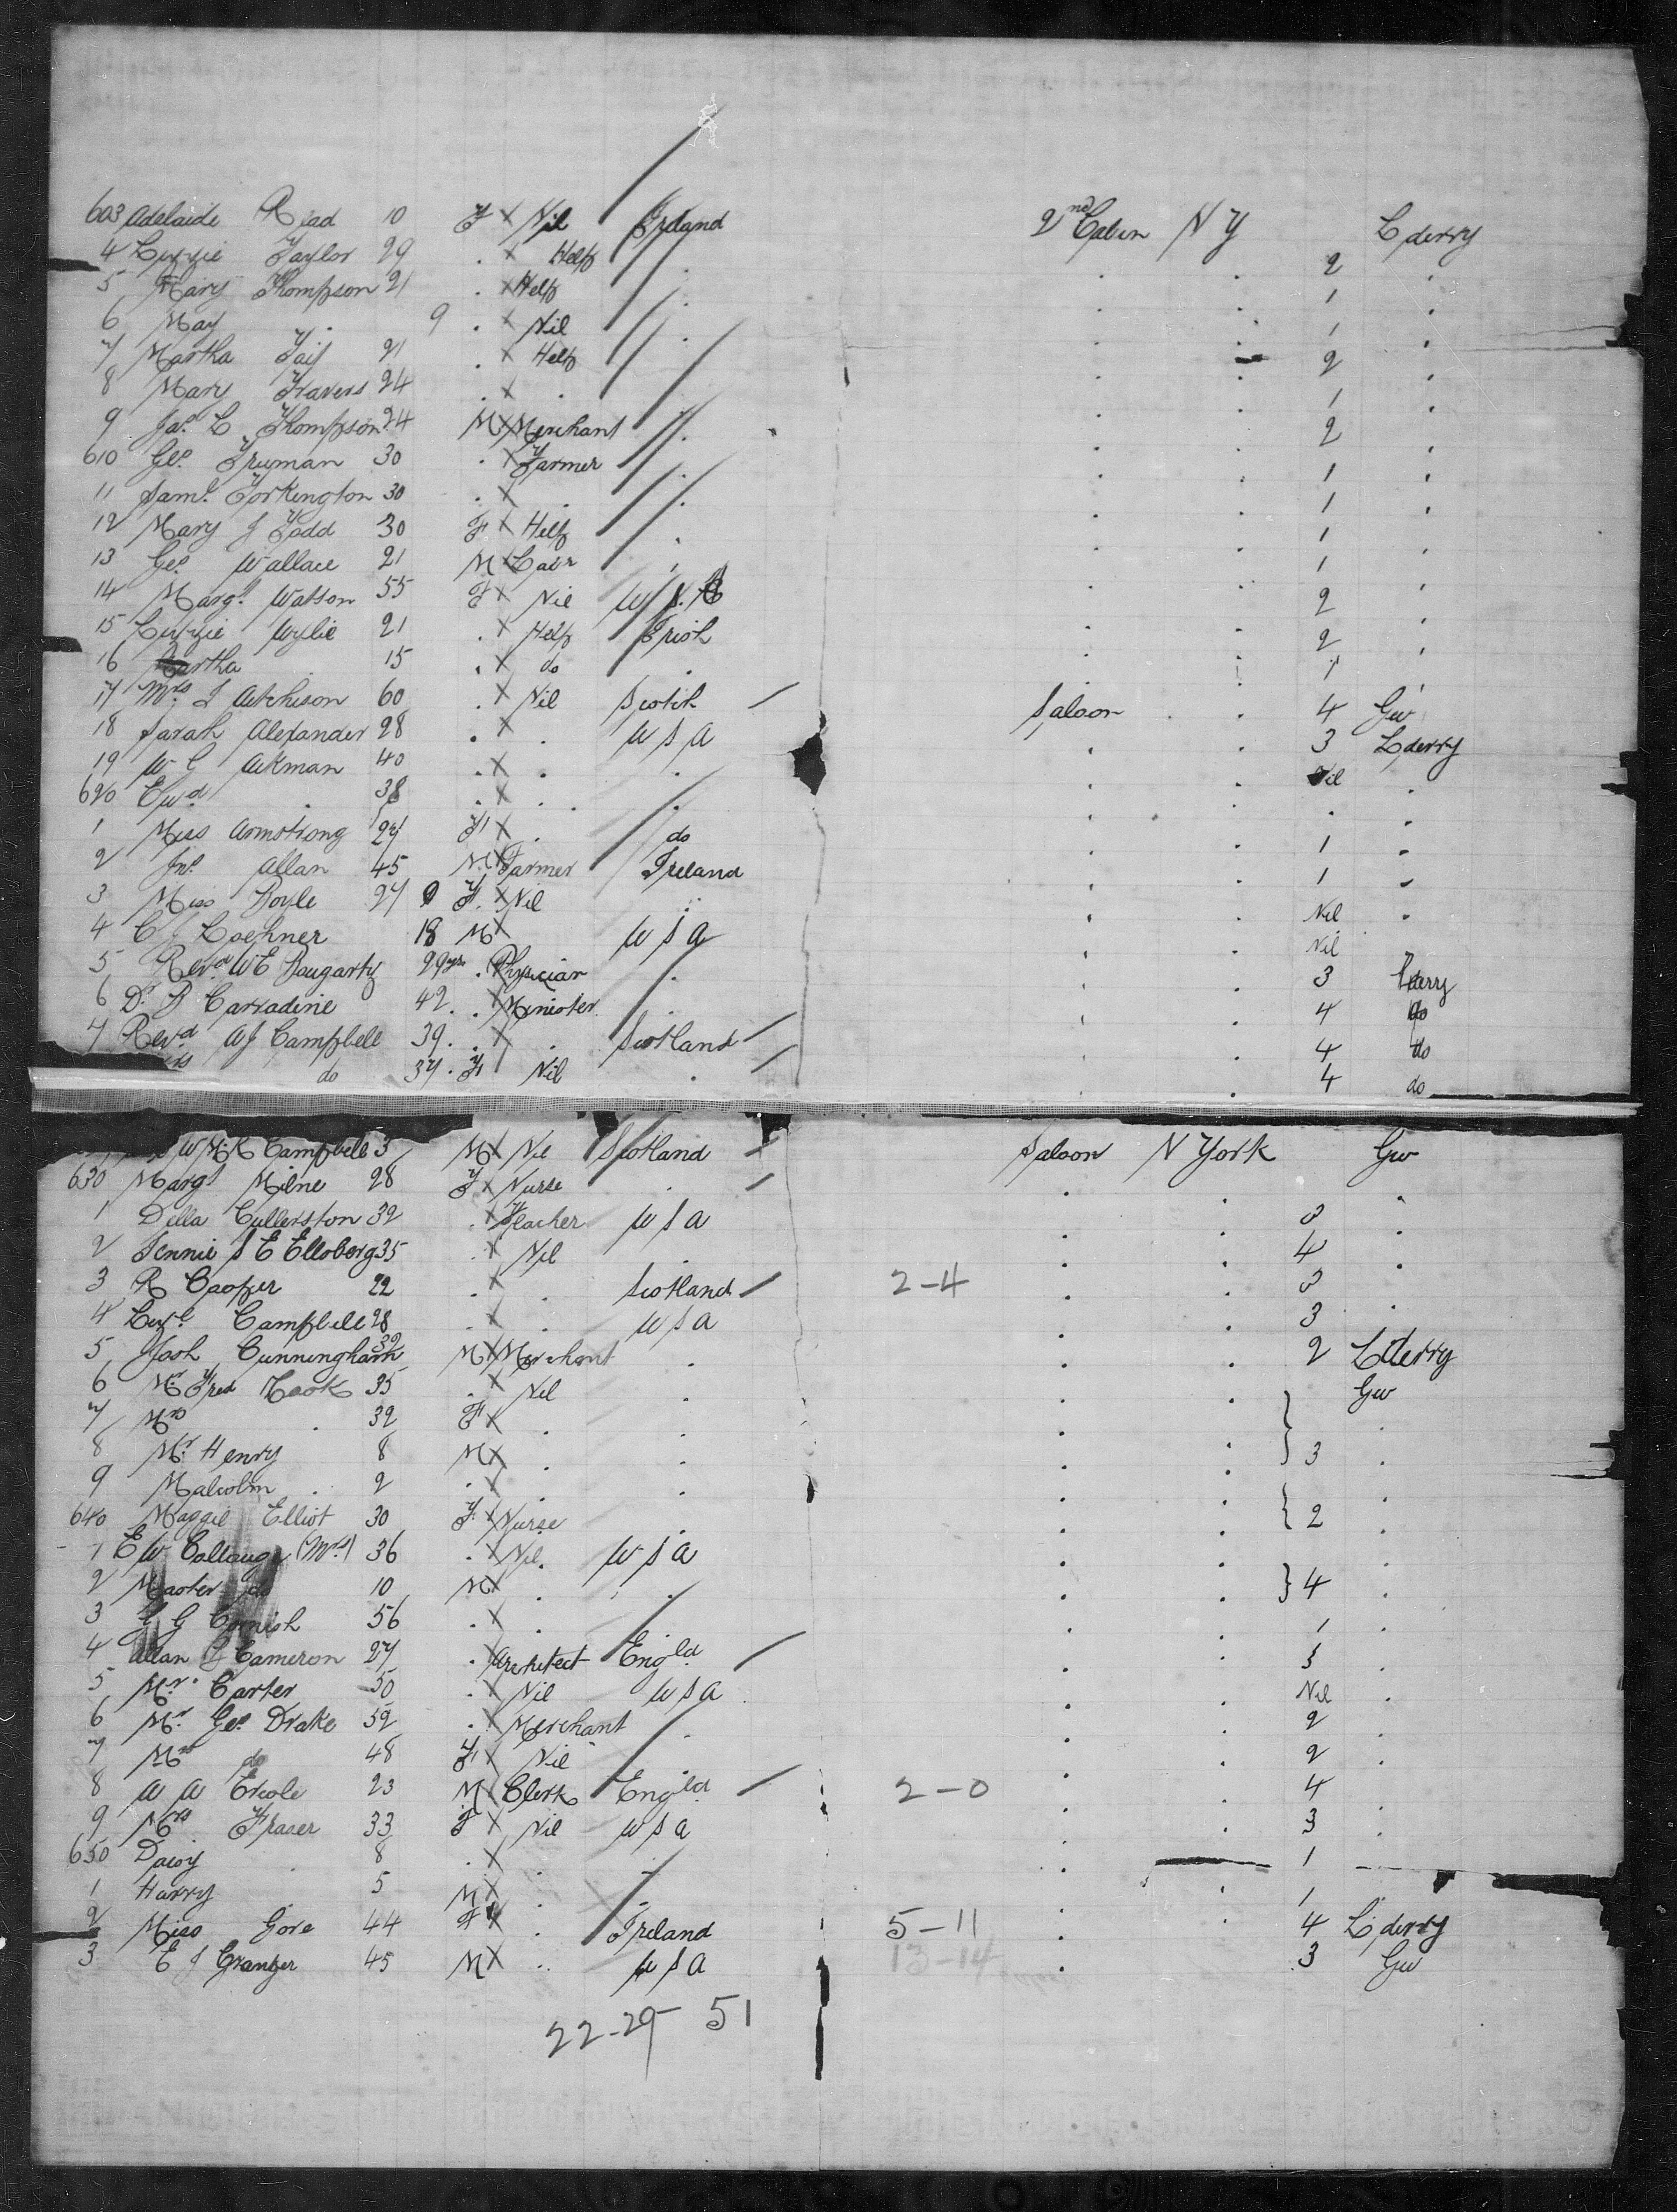 603 Adelaide Read 10 F X Nil Ireland 2nd Cabin N Y L derry
4 Lizzie Taylor 29 . X Help . . . 2 .
5 Mary Thompson 21 . X Help . . . 1 .
6 May . 9 . X Nil . . . 1 .
7 Martha 21 . X Help . . . 2 .
8 Mary Travers 24 . X . . . . 1 .
9 Jas. L Thompson 24 M X Merchant . . . 2 .
610 Geo. Truman 30 . X Farmer . . . 1 .
11 Saml. Torkington 30 . X . . . . 1 .
12 Mary J Todd 30 F X Help . . . 1 .
13 Geo Wallace 21 M X Labr . . . 1 .
14 Margt. Watson 55 F X Nil . . 2 .
15 Lizzie Wylie 21 . X Help Irish . . 2 .
16 Martha . 15 . X do . . . 1 .
17 Mrs J Aitchison 60 . X Nil Scotch / Saloon . . 4 Gw
18 Sarah Alexander 28 . X . U S A . . 3 L derry
19 W C Aikman 40 . X . . . . Nil .
620 Ewd . 38 . X . . . . . .
1 Miss Armstrong 27 F X . do . . 1 .
2 Jno. Allan 45 M X Farmer Ireland . . 1 .
3 Miss Boyle 27 F. X Nil . . . Nil .
4 C J Loehner 18 M X U S A . . Nil
5 Revd. W E Bougarty 29yrs . Physician . . . 3 L derry
6 Dr. B Carradine 42 . . X Minister . . . 4 do
7 Revd A J Campbell 39 . . X . Scotland / . . 4 do
do 37 . F Nil . / . . 4 do
W M K Campbell 3 M X Nil Scotland / Saloon N York Gw
630 Margt Milne 28 F X Nurse . / . . .
1 Della Cullerston 32 . X Teacher U S A . . 3 .
2 Jennie S E Ellsberg 35 . X Nil . . . 4 .
3 R Cooper 22 . X . Scotland / 2-4 . . 3
4 Campbell 28 . X . U S A . . 3 .
5 Josh Cunningham 32 M X Merchant . . . 2 L derry
6 Mr. Fred Cook 35 . X Nil . . . Gw
7 Mrs . 32 F X . . . . .
8 Mr. Henry 8 M X . . . . } 3 .
9 Malcolm . 2 . X . . . .
640 Maggie Elliot 30 F. X Nurse . . . } 2 .
1 E W (Mrs) 36 . X Nil. U S A . .
2 Master do 10 M X . . . . } 4 .
3 G Cornish 56 . X . . . . 1 .
4 Allan Cameron 27 . X Architect Engld / . . 3 .
5 Mr. Carter 50 . X Nil U S A . . Nil .
6 Mr. Geo Drake 52 . X Merchant . . . 2
7 Mrs do 48 F X Nil . . . 2 .
8 A A Ercole 23 M X Clerk Engld / 2-0 . . 4
9 Mrs Fraser 33 F X Nil U S A . . 3 .
650 Daisy . 8 . X . . . 1
1 Harry 5 M X . . . . 1 .
2 Miss Gore 44 F X . Ireland 5-11 . . 4 L derry
3 E J Granger 45 M X . U S A 13-14 . 3 Gw
22-29 51